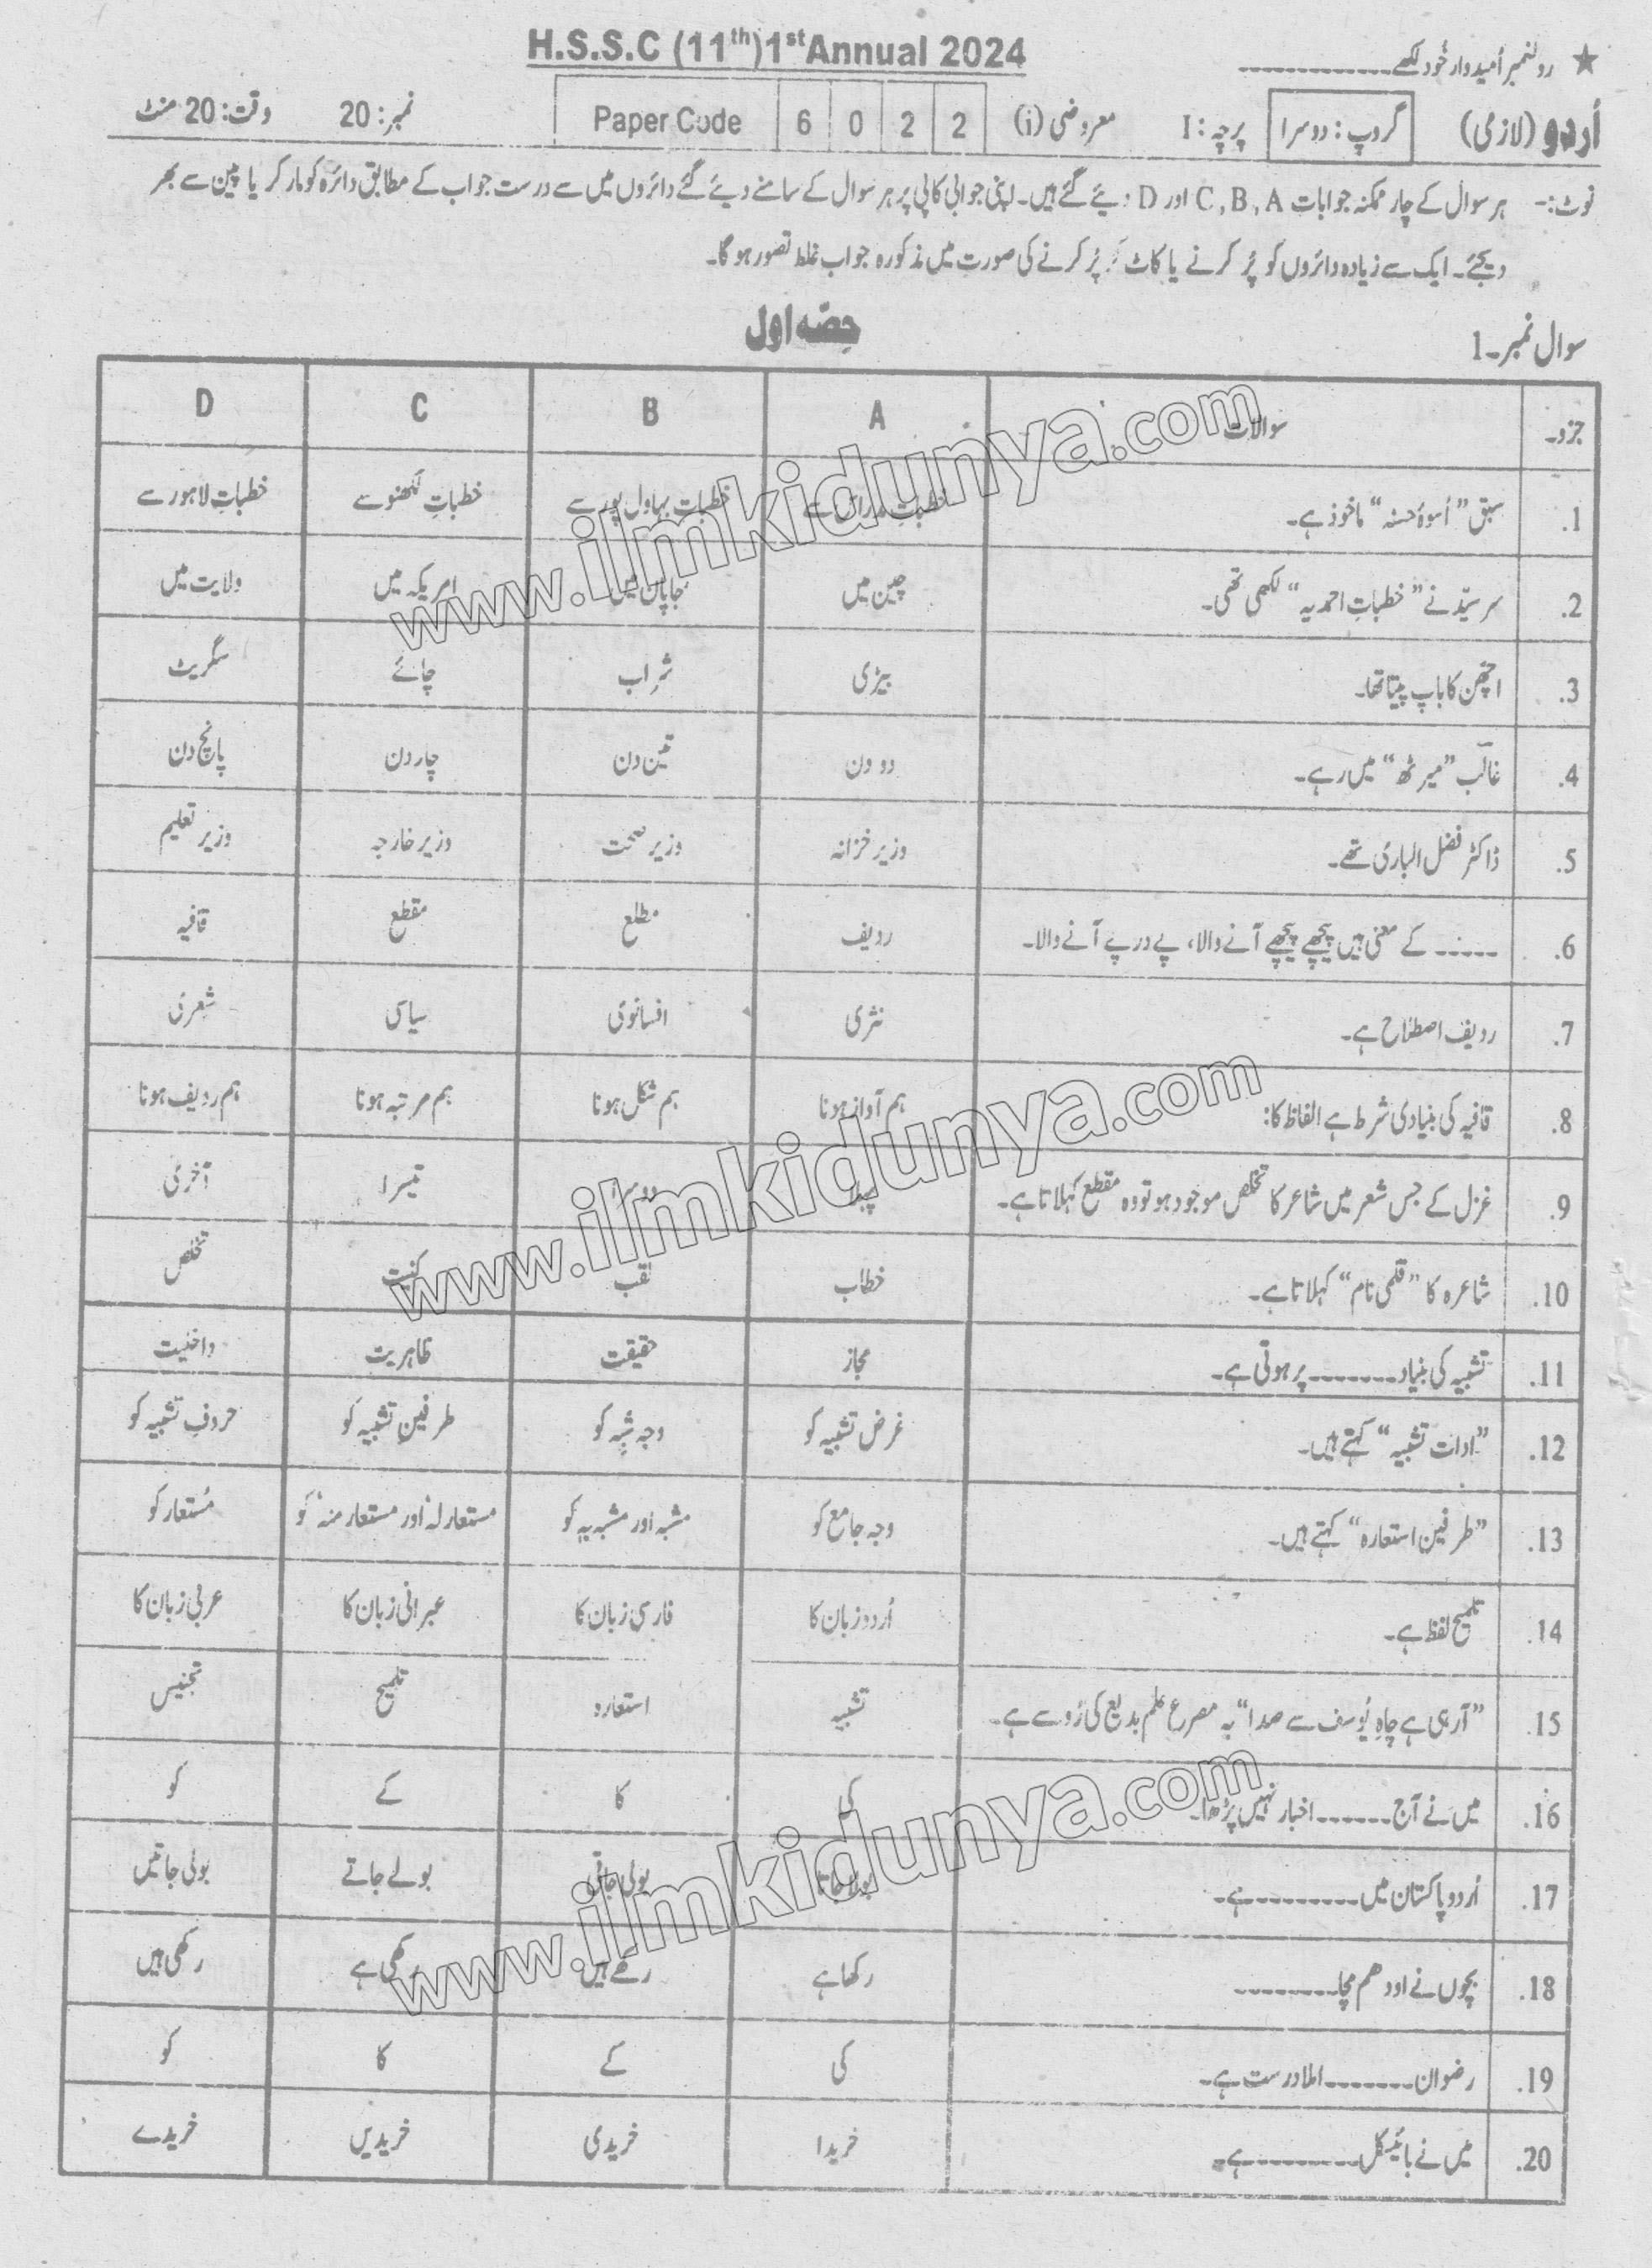 H.S.S.C (11th)1st Annual 2024
★ رولنمبر اُمیدوار خُود لکھے۔------------
اُردو (لازمی) گروپ: دوسرا پرچہ: I معروضی (i) Paper Code 6 0 2 2 نمبر: 20 وقت: 20 منٹ
نوٹ:- ہر سوال کے چار ممکنہ جوابات C, B, A اور D دیئے گئے ہیں۔ اپنی جوابی کاپی پر ہر سوال کے سامنے دیئے گئے دائروں میں سے درست جواب کے مطابق دائرہ کو مارکر یا پین سے بھر
دیجئے۔ ایک سے زیادہ دائروں کو پُر کرنے یا کاٹ کر پُر کرنے کی صورت میں مذکورہ جواب غلط تصور ہوگا۔
حِصّہ اول
سوال نمبر۔1
جزو۔ سوالات A B C D
1. سبق ”اُسوۂ حسنہ“ ماخوذ ہے۔ خطباتِ مدراس سے خطباتِ بہاول پور سے خطباتِ لکھنو سے خطباتِ لاہور سے
2. سر سیّد نے ”خطباتِ احمدیہ“ لکھی تھی۔ چین میں جاپان میں امریکہ میں ولایت میں
3. اچھّن کا باپ پیتا تھا۔ بیڑی شراب چائے سگریٹ
4. غالبؔ ”میرٹھ“ میں رہے۔ دو دن تین دن چار دن پانچ دن
5. ڈاکٹر فضل الباری تھے۔ وزیر خزانہ وزیر صحت وزیر خارجہ وزیر تعلیم
6. ----- کے معنی ہیں پیچھے پیچھے آنے والا، پے در پے آنے والا۔ ردیف مطلع مقطع قافیہ
7. ردیف اصطلاح ہے۔ نثری افسانوی سیاسی شعری
8. قافیہ کی بنیادی شرط ہے الفاظ کا: ہم آواز ہونا ہم شکل ہونا ہم مرتبہ ہونا ہم ردیف ہونا
9. غزل کے جس شعر میں شاعر کا تخلص موجود ہو تو وہ مقطع کہلاتا ہے۔ پہلا دوسرا تیسرا آخری
10. شاعرہ کا ”قلمی نام“ کہلاتا ہے۔ خطاب لقب کنیت تخلص
11. تشبیہ کی بنیاد------- پر ہوتی ہے۔ مجاز حقیقت ظاہریت داخلیت
12. ”ادات تشبیہ“ کہتے ہیں۔ غرض تشبیہ کو وجہ شبہ کو طرفینِ تشبیہ کو حروفِ تشبیہ کو
13. ”طرفین استعارہ“ کہتے ہیں۔ وجہ جامع کو مشبہ اور مشبہ بہ کو مستعار لہ اور مستعار منہ کو مُستعار کو
14. تلمیح لفظ ہے۔ اُردو زبان کا فارسی زبان کا عبرانی زبان کا عربی زبان کا
15. ”آ رہی ہے چاہِ یُوسف سے صدا“ یہ مصرع علم بدیع کی رُو سے ہے۔ تشبیہ استعارہ تلمیح تجنیس
16. میں نے آج------ اخبار نہیں پڑھا۔ کی کا کے کو
17. اُردو پاکستان میں--------- ہے۔ بولا جاتا بولی جاتی بولے جاتے بولی جاتیں
18. بچوں نے اودھم مچا-------- رکھا ہے رکھے ہیں رکھی ہے رکھی ہیں
19. رضوان------- املا درست ہے۔ کی کے کا کو
20. میں نے بائیسکل--------- ہے۔ خریدا خریدی خریدیں خریدے
www.ilmkidunya.com
www.ilmkidunya.com
www.ilmkidunya.com